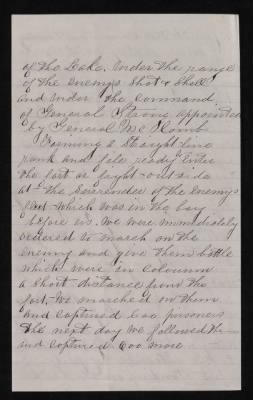 of the Lake. Under the range
of the enemys Shot & Shell
and under the command.
of General Strong appointed
by General Mc
Forming a Straight line
rank and file ready Enter
the fort or fight outside
at the Surrender of the Enemys
fleet which was in the bay
before us. We were immediately
ordered to march on the
Enemy and give them battle
which were in coloumn
a Short distance from the
fort, We marched on them
and captured 600 prisoners
The next day we followed the
and captured 600 more